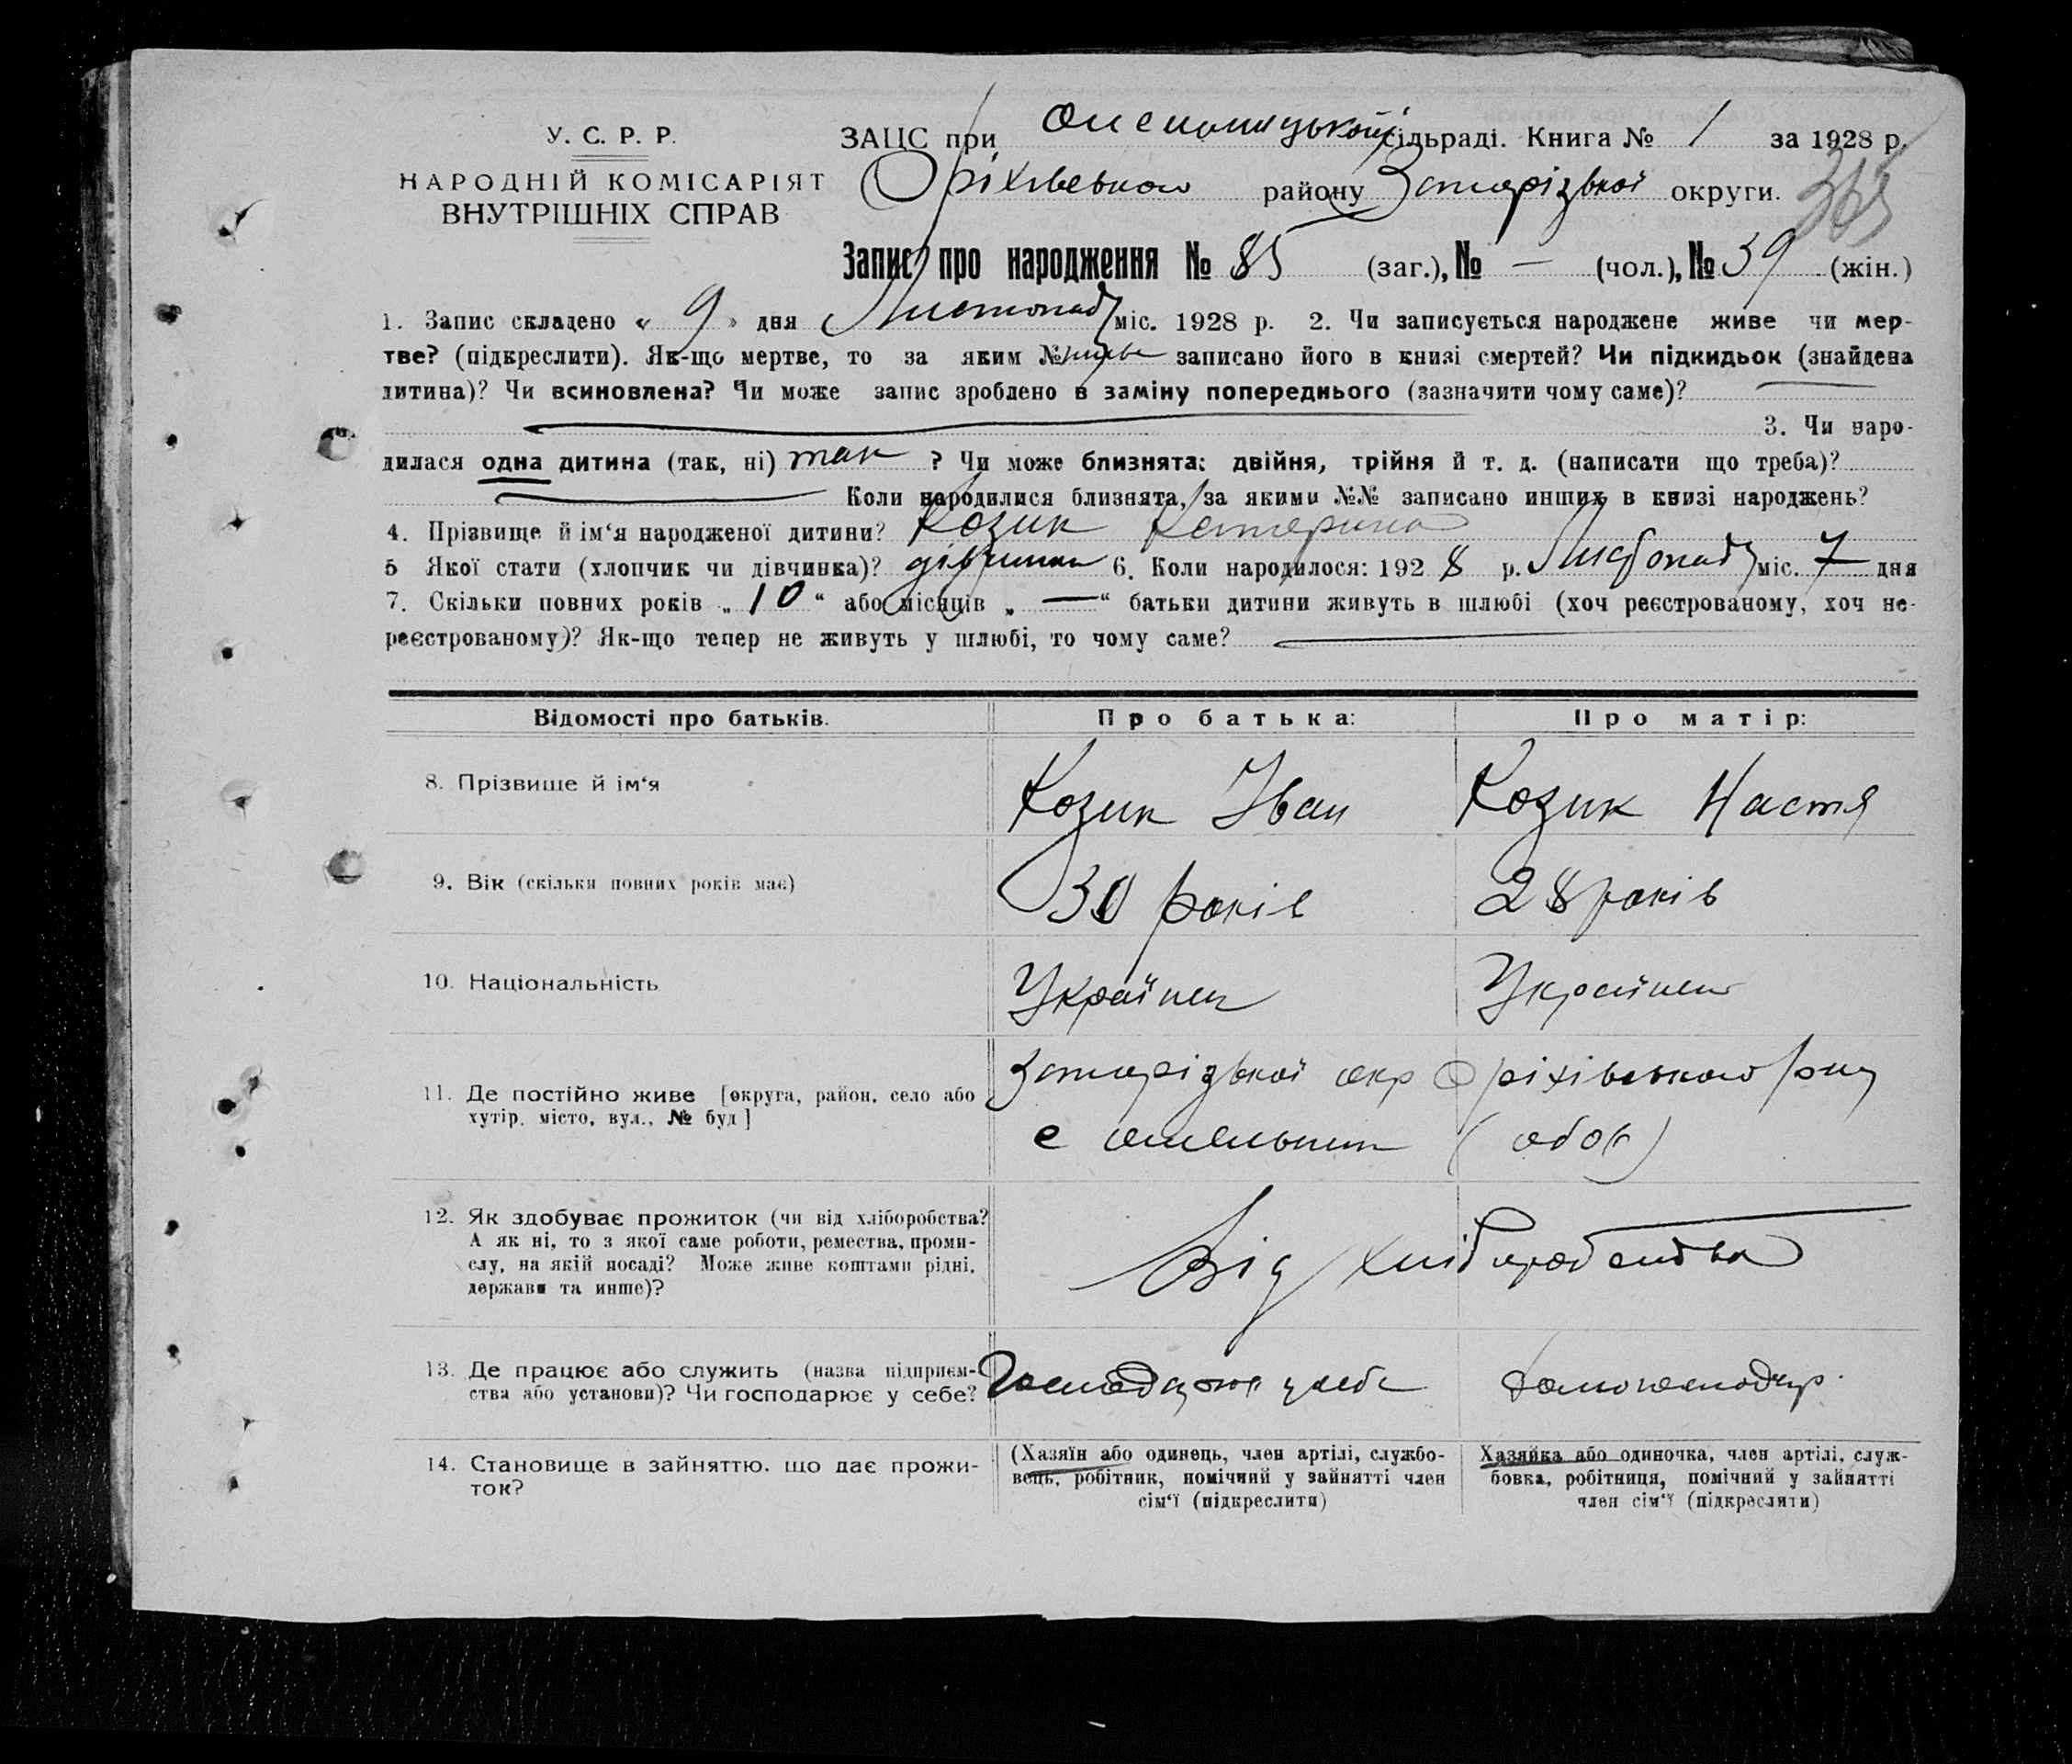 У. С. Р. Р.
НАРОДНІЙ КОМІСАРІЯТ
ВНУТРІШНІХ СПРАВ
ЗАЦС при сільраді. Книга № 1 за 1928 р.
Оріхівського району Запорізької округи.
Запис про народження № 85 (заг.), № — (чол.), № 39 (жін.)
1. Запис складено « 9 » дня Листопад міс. 1928 р. 2. Чи записується народжене живе чи мер-
тве? (підкреслити). Як-що мертве, то за яким № живе записано його в книзі смертей? Чи підкидьок (знайдена
дитина)? Чи всиновлена? Чи може запис зроблено в заміну попереднього (зазначити чому саме)?
3. Чи наро-
дилася одна дитина (так, ні) так ? Чи може близнята: двійня, трійня й т. д. (написати що треба)?
Коли народилися близнята, за якими №№ записано инших в книзі народжень?
4. Прізвище й ім'я народженої дитини? Козик Катерина
5 Якої стати (хлопчик чи дівчинка)? дівчинка 6. Коли народилося: 192 8 р. Листопад міс. 7 дня
7. Скільки повних років „ 10 “ або місяців „ — “ батьки дитини живуть в шлюбі (хоч реєстрованому, хоч не-
реєстрованому)? Як-що тепер не живуть у шлюбі, то чому саме?
Відомості про батьків. Про батька: Про матір:
8. Прізвище й ім'я Козик Іван Козик Настя
9. Вік (скільки повних років має) років 28 років
10. Національність Українец Українец
11. Де постійно живе [округа, район, село або
хутір, місто, вул., № буд]
Запорізької окр Оріхівського р-ну
с (обоє)
12. Як здобуває прожиток (чи від хліборобства?
А як ні, то з якої саме роботи, ремества, проми-
слу, на якій посаді? Може живе коштами рідні,
держави та инше)?
Від хліборобства
13. Де працює або служить (назва підприєм-
ства або установи)? Чи господарює у себе?
Господарює у себе домогосподар.
14. Становище в зайняттю, що дає прожи-
ток?
(Хазяїн або одинець, член артілі, службо-
вець, робітник, помічний у зайнятті член
сім'ї (підкреслити)
Хазяйка або одиночка, член артілі, служ-
бовка, робітниця, помічний у зайнятті
член сім'ї (підкреслити)